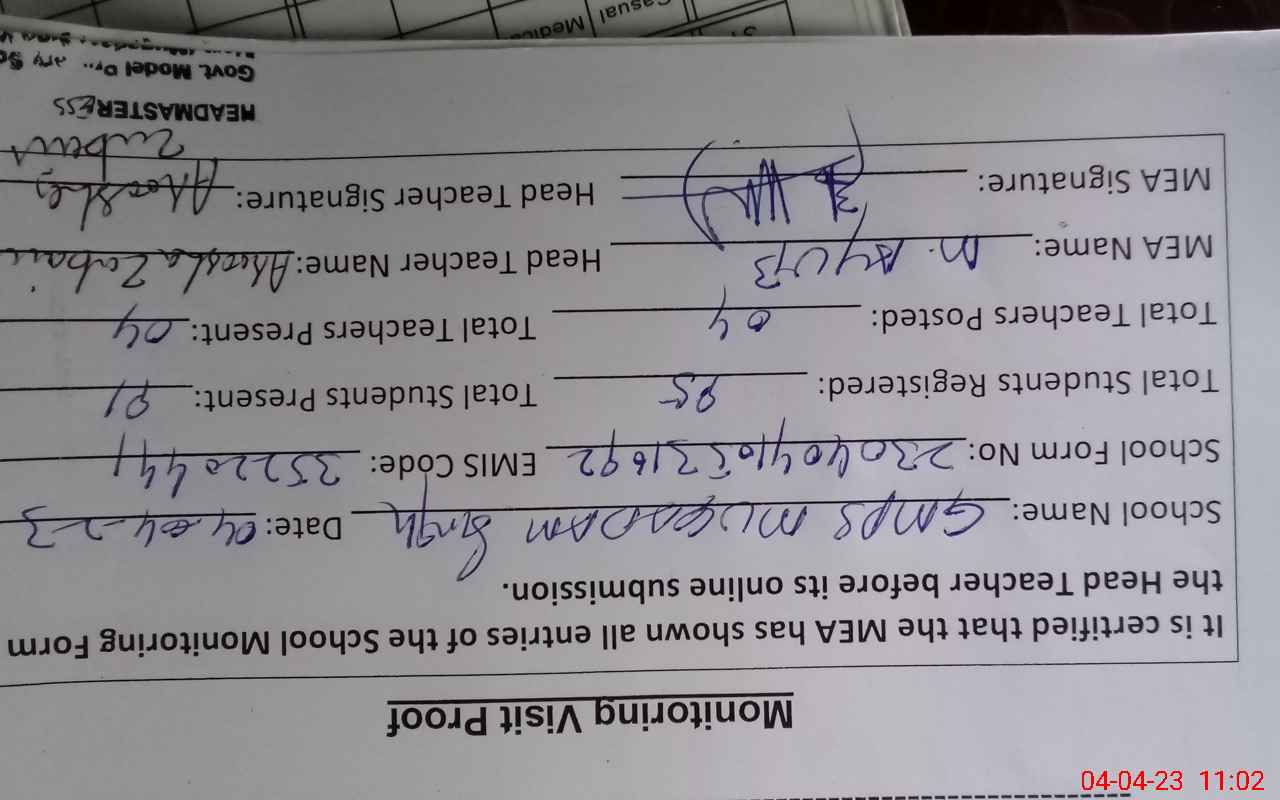 Monitoring Visit Proof
It is certified that the MEA has shown all entries of the School Monitoring Form
the Head Teacher before its online submission.
School Name: GMPS MUQADAM Singh Date: 04-04-23
School Form No: EMIS Code: 35220444
Total Students Registered: 95 Total Students Present: 91
Total Teachers Posted: 04 Total Teachers Present: 04
MEA Name: M. Ayub Head Teacher Name: Aleesha Zubair
MEA Signature: Head Teacher Signature: Aleesha
Zubair
HEADMASTERESS
Govt. Model
Casual
Medical
04-04-23 11:02